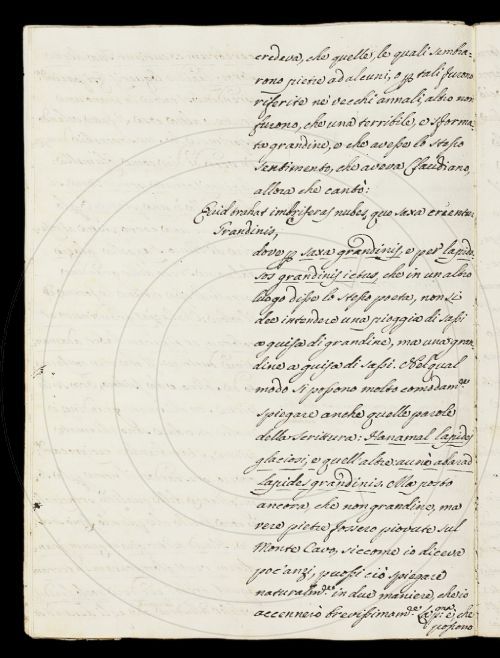 credeva, che quelle, le quali sembra-
rono pietre ad alcuni, o p tali furono
riferite ne' vecchi annali, altro non
furono, che una terribile, e sforma-
ta grandine, e che avesse lo stesso
sentimento, che aveva Claudiano,
allora che cantò:
Quid trahat imbriferas nubes, quo saxa
Grandinis,
dove p saxa grandinis, e per lapido-
sos grandinis ictus, che in un altro
luogo disse lo stesso poeta, non si
dee intendere una pioggia di sassi
a guisa di grandine, ma una gran-
dine a guisa di sassi. Nel qual
modo si possono molto comodam.te
spiegare anche quelle parole
della Scrittura: Hanamal lapides
glaciosi; e quell'altre:
lapides grandinis. Ma posto
ancora, che non grandine, ma
vere pietre fossero piovute sul
Monte Cavo, siccome io diceva
poc'anzi, puossi ciò spiegare
naturalm.te in due maniere, che io
accennerò brevissimam.te La p.ma è, che
possono